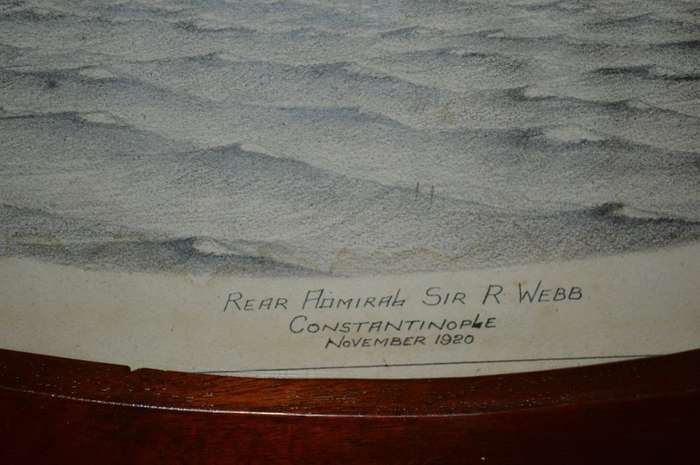 REAR ADMIRAL SIR R WEBB
CONSTANTINOPLE
NOVEMBER 1920